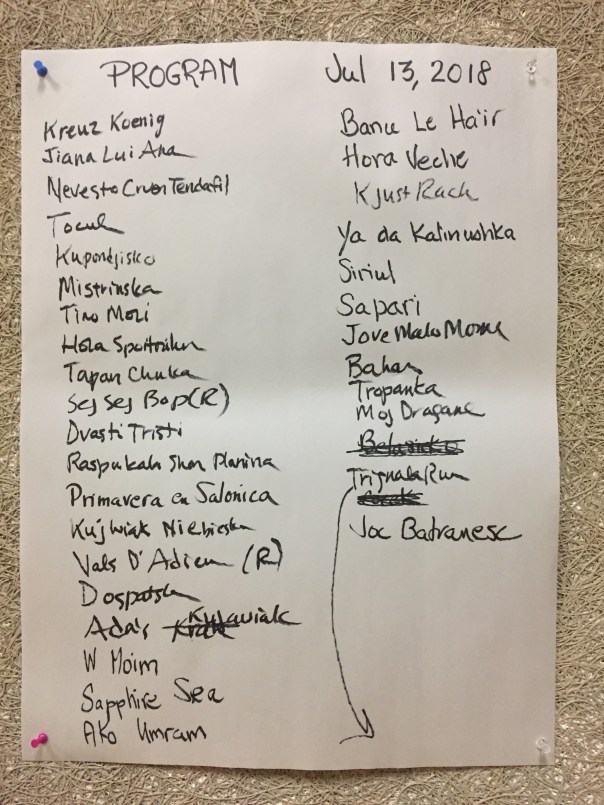 PROGRAM Jul 13, 2018
Kreuz Koenig
Jiana Lui Ana
Nevesto Crven Tendafil
Tocul
Kupondjisko
Mistrinska
Tino Mori
Hola
Tapan Chuka
Sej Sej Bop (R)
Dvasti Tristi
Raspukala Shar Planina
Primavera en Salonica
Kujwiak Niebieski
Vals D'Adieu (R)
Dospatsko
Ada's Kujawiak
W Moim
Sapphire Sea
Ako Umram
Banu Le Haïr
Hora Veche
Kjust Rach
Ya da Kalinushka
Siriul
Sapari
Jove Malo Mome
Bahar
Tropanka
Moj Dragane
Belasicko
Trignala Rum
Cocek
Joc Batranesc